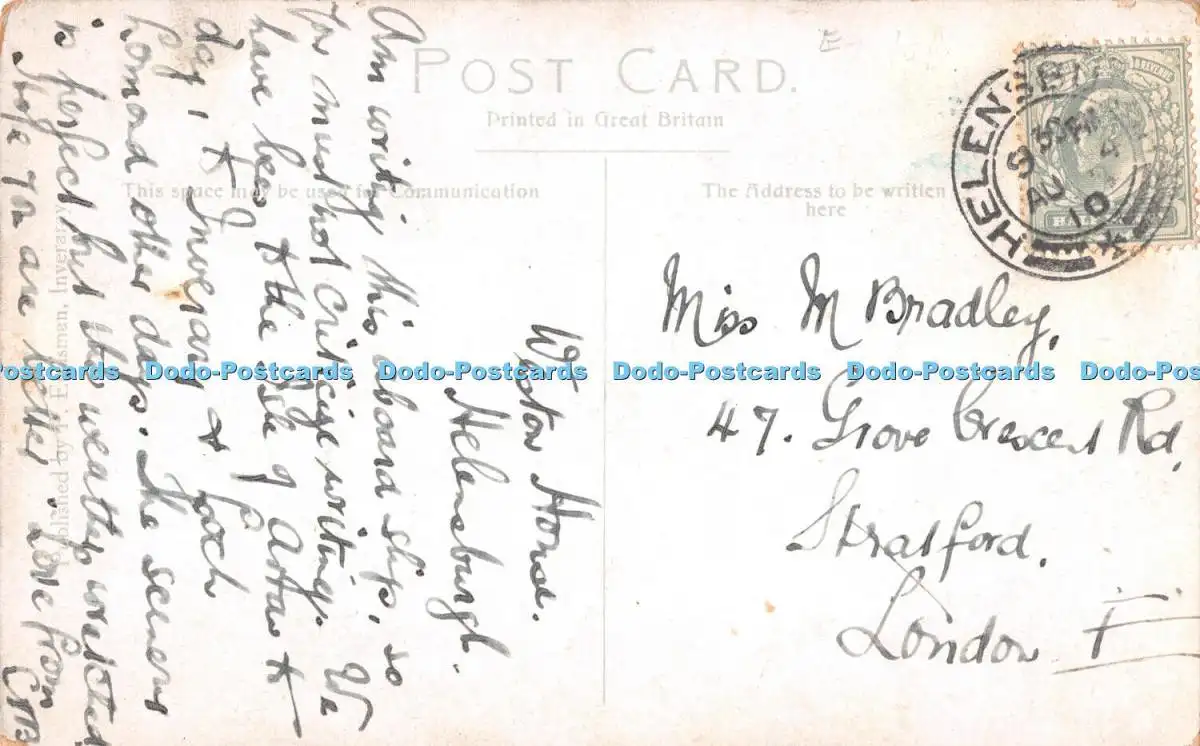 POST CARD.
Printed in Great Britain
This space may be used for Communication
The Address to be written
here
HELENSBURGH
AU 4
10
Miss M Bradley,
47. Grove Crescent Rd,
Stratford.
London E
Weston House.
Helensburgh.
Am writing this aboard ship, so
you must not criticize writing. We
have been to the Isle of Arran to
day, to Inverary & Loch
Lomond other days. The scenery
is perfect but the weather wretched
Hope you are better. Love from
CMB
Published by Inverary
Dodo-Postcards Dodo-Postcards Dodo-Postcards Dodo-Postcards Dodo-Postcards Dodo-Postcards